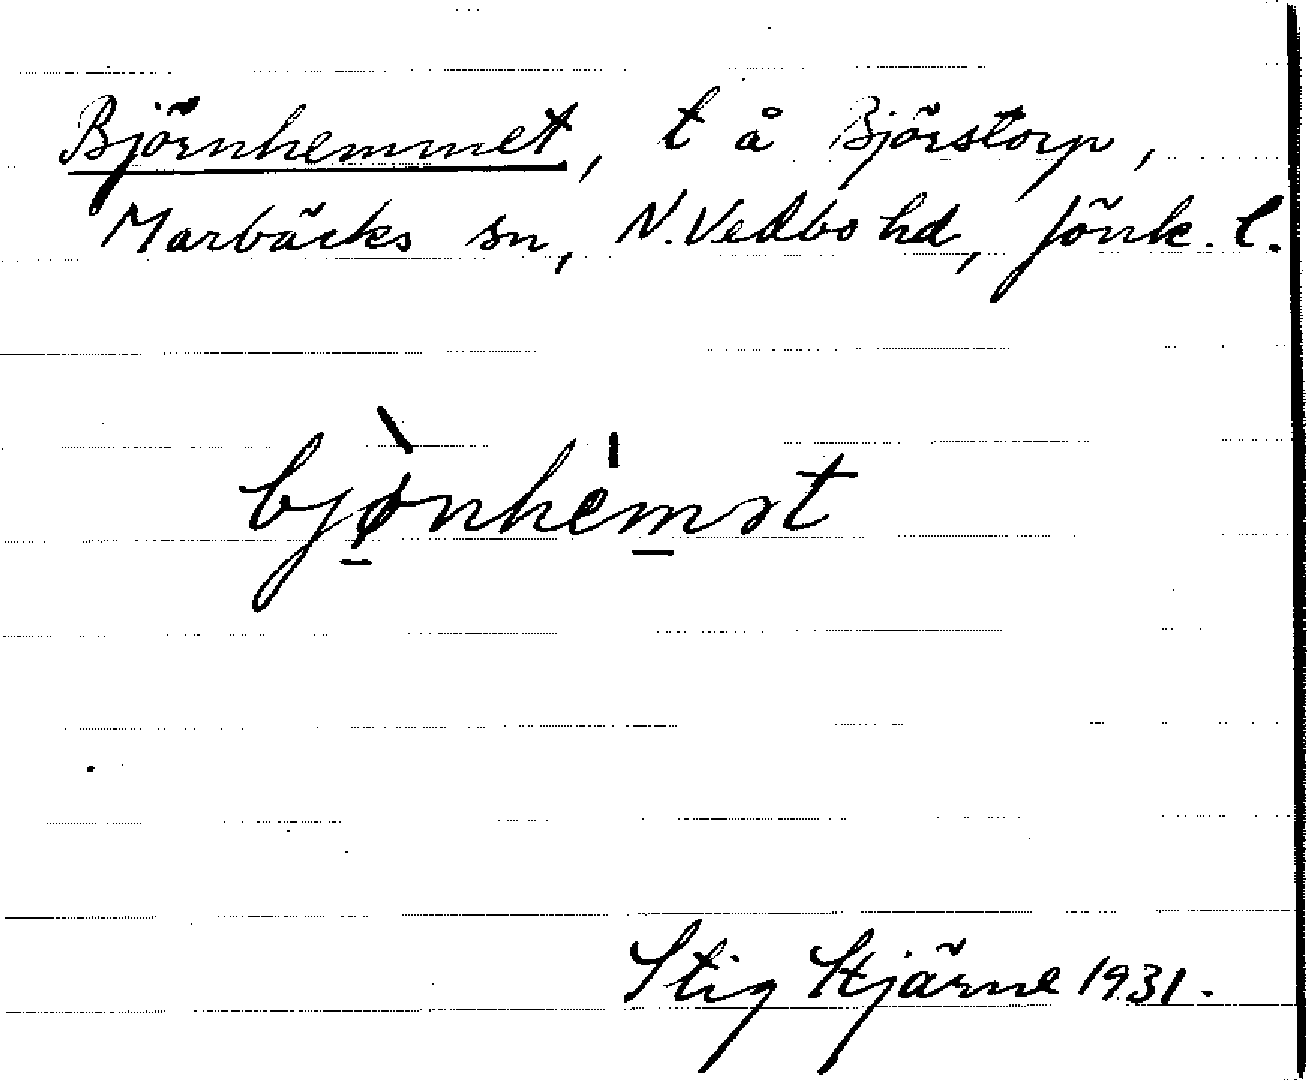 Björnhemmet, t å Björstorp,
Marbäcks sn, N. Vedbo hd, Jönk. l.
bjø̀nhémət
Stig Stjärne 1931.